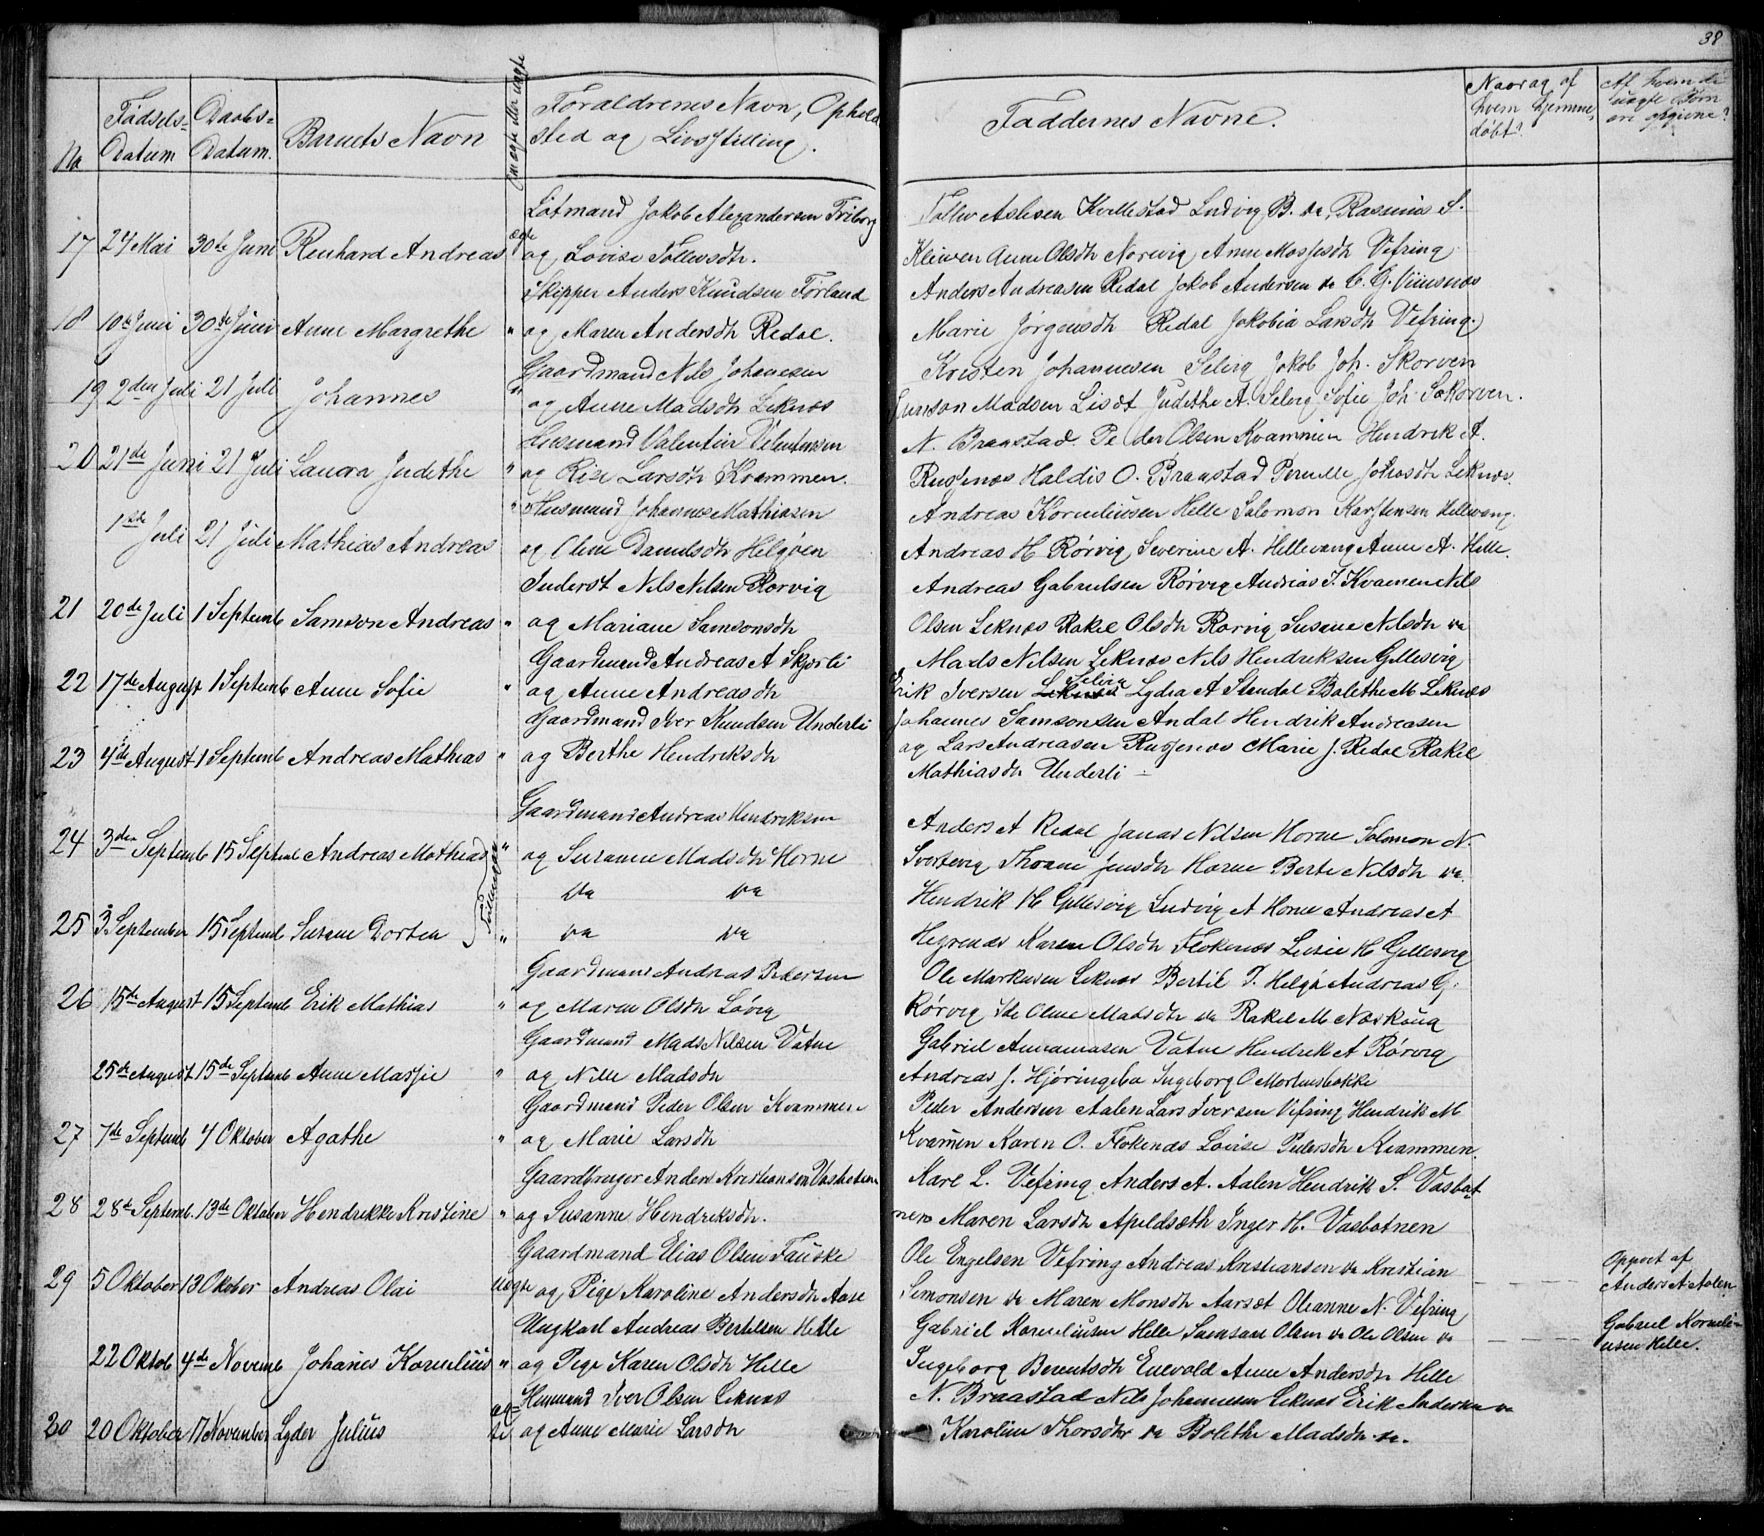 38
No
Fødsels-
Datum
Daabs-
Datum.
Barnets Navn
Forældrenes Navn, Ophold
sted og Livsstilling.
Faddernes Navne.
Naar og af
hvem hjemme,
døbt?
Af hvem de
uægte Børn
ere opgivne?
Lotmand Jakob Alexandersen
17 24 Mai 30te Juni Renhard Andreas ægte og Lovise Tollevsdtr.
Tollev Aslesen Kvellestad Ludvig B. do, Rasmus S.
Anne Olsdtr Norevig Anne Vefring
Skipper Anders Knudsen Førland
18 10de Juni 30te Juni Anne Margrethe " og Maren Andersdtr Redal.
Anders Andreasen Redal Jakob Andersen do C. G.
Marie Jørgensdtr Redal Jakobia Larsdtr Vefring.
Gaardmand Nils Johanesen
19 2den Juli 21 Juli Johannes " og Anne Madsdtr Leknæs
Kristen Johannesen Selvig Jakob Joh. Skorven
Madsen Judethe A. Selvig Sofie Joh. Skorven.
Husmand Valentin Valentinsen
20 21de Juni 21 Juli Laura Judethe " og Larsdtr Kvammen.
N. Braastad. Peder Olsen Kvammen Hendrik A.
Haldis O. Braastad Pernille Leknæs.
" Husmand Johannes Mathiasen
1ste Juli 21 Juli Mathias Andreas og Oline Danielsdtr Helgøen
Andreas Korneliusen Helle Salomon Karstensen Hellevang.
Andreas H Rørvig, Severine A. Hellevang Anne A. Helle.
Inderst Nils Nilsen Rørvig
21 20de Juli 1 Septemb Samson Andreas " og Mariane Samsonsdtr
Andreas Gabrielsen Rørvig Andrias I. Kvamen Nils
Olsen Leknæs Rakel Olsdtr Rørvig Susane Nilsdtr do
Gaardmand Andreas A Skjerli
22 17de August 1 Septemb Anne Sofie " og Anne Andreasdtr
Mads Nilsen Leknæs Nils Hendriksen Gyllesvig
Erik Iversen Leknæs Selvig Lydia A Standal Bolethe M Leknæs
Gaardmand Iver Knudsen Underli
23 4de August 1 Septemb Andreas Mathias " og Berthe Hendriksdtr
Johannes Samsonsen Andal Hendrik Andreasen
og Lars Andreasen Marie J. Redal Rakel
Mathiasdtr Underli -
Gaardmand Andreas Hendriksen
24 3den Septemb 15 Septemb Andreas Mathias " og Susanne Madsdtr Horne
Anders A Redal Jonas Nilsen Horne Solomon N.
Svortevig Jensdtr Horne Berte Nilsdtr do.
Tvillinger
do do
25 3 September 15 Septemb Susane Dortea " do do
Hendrik H Gyllesvig Ludvig A Horne Andreas A
Hegrenæs Karen Olsdtr Flokenæs Lusie H Gyllesvig
Gaardmand Andreas Pedersen
26 15de August 15 Septemb Erik Mathias " og Maren Olsdtr Løvig
Ole Markusen Leknæs Bertil I. Helgø Andreas G.
Rørvig Oline Madsdtr do Rakel M
Gaardmand Mads Nilsen Vatne
25de August 15de Septemb Anne Massie " og Nille Madsdtr
Gabriel Vatne Hendrik A Rørvig
Andreas J. Hjøringebø Ingeborg O Mortensbakke
Gaardmand Peder Olsen Kvammen
27 7de Septemb 4 Oktober Agathe " og Marie Larsdtr
Peder Andersen Aalen Lars Iversen Vefring Hendrik M
Kvamen Karen O. Flokenæs Lovise Pedersdtr Kvammen.
Gaardbruger Anders Kristiansen
28 28de Septemb. 13de Oktober Hendrikke Kristine " og Susanne Hendriksdtr.
Kare L. Vefring Anders A. Aalen Hendrik S. Vasbot
nen Maren Larsdtr Apeldsæth Inger H. Vasbotnen
Gaardmand Elias Olsen Fauske
29 5 Oktober 13 Oktober Andreas Olai Uægte og Pige Karoline Andersdtr Aase
Ole Engelsen Vefring Andreas Kristiansen do Kristian
Simonsen do Maren Monsdtr Aarsæt Oleanne N. Vefring
Oppoet af
Anders A Aalen
Ungkarl Andreas Bertelsen Helle
22 Oktob 4de Novemb Johanes Kornelius " og Pige Karen Olsdtr Helle
Gabriel Korneliusen Helle Samson Olsen do Ole Olsen do
Ingeborg Berentsdtr Enevold Anne Andersdtr Helle
Gabriel Korneli-
usen Helle.
Husmand Iver Olsen Leknæs
30 20 Oktober 17 November Lyder Julius og Anne Marie Larsdtr
N. Braastad Nils Johannesen Leknæs Erik Andersen do
Karoline Thorsdtr do Bolethe Madsdtr do.